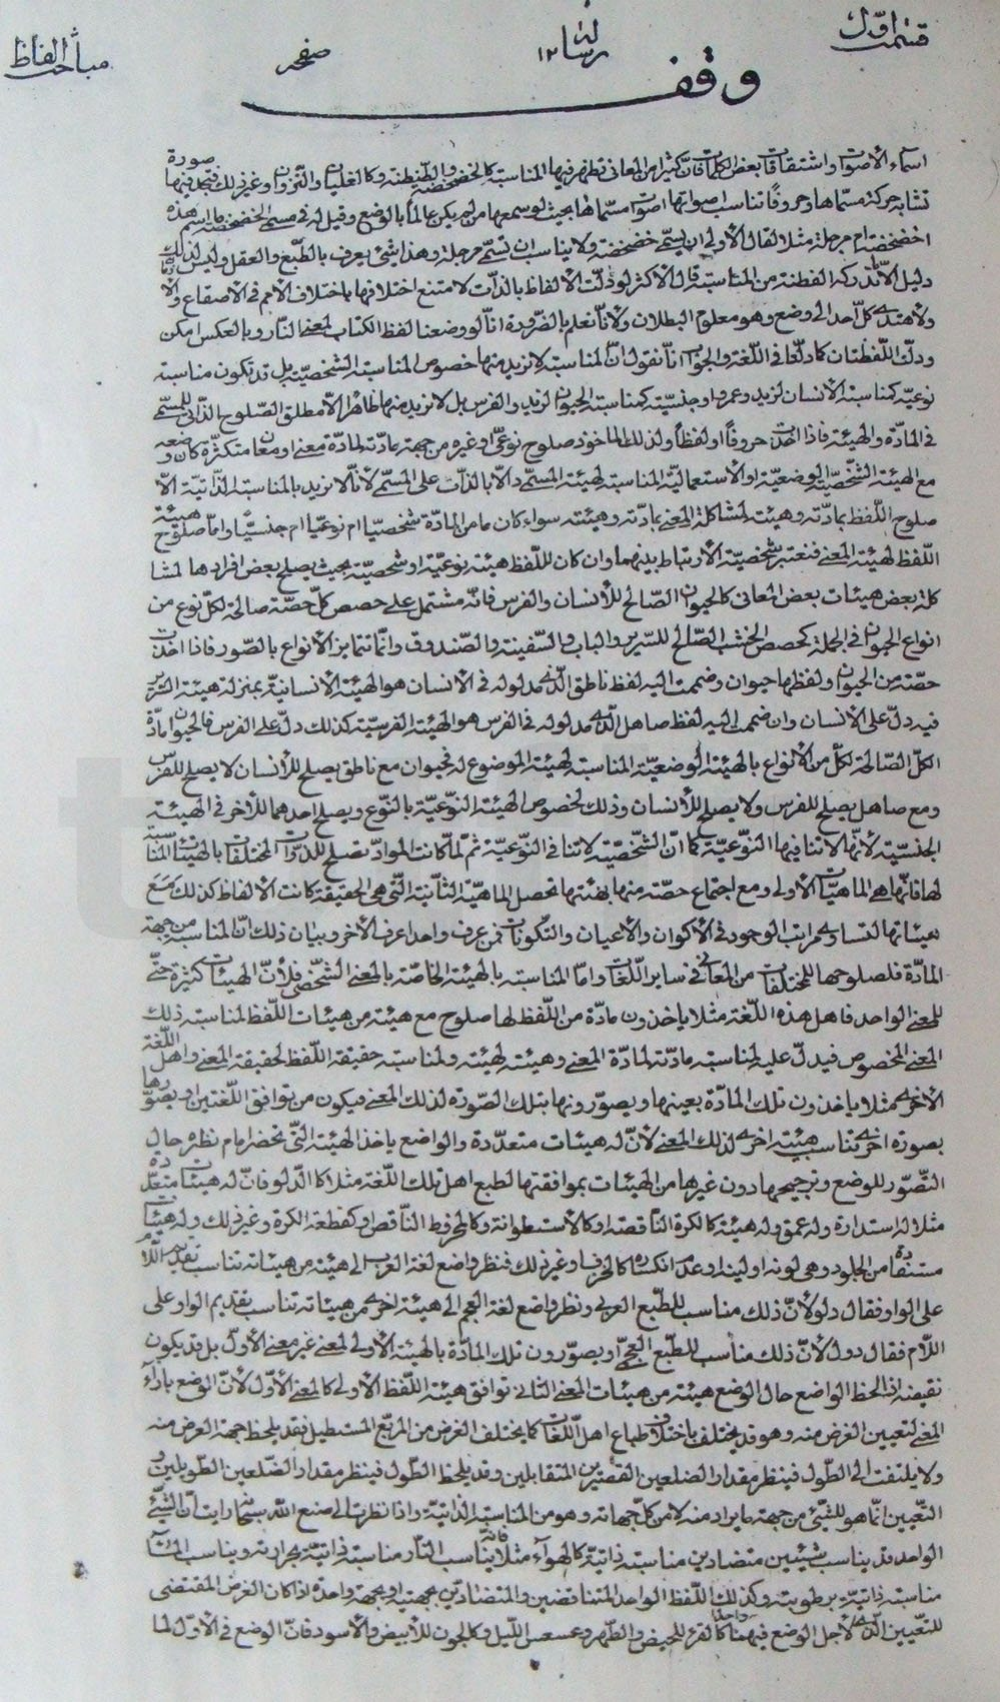 قسمت اول
رساله ١٢
صفحه
مباحث الفاظ
وقف
اسماء الأصوات واشتقاقات بعض الكلمات فانّ كثيرا من المعانى تظهر فيها المناسبة كالخضخضة والطنطنة وكالغليان والنزوان وغير ذلك فتجد فيها صورة
تشابه حركة مسمّاها وحروفًا تناسب اصواتها اصوات مسمّاها بحيث لو سمعها من لم يكن عالماً بالوضع وقيل له فى مسمى الخضخضة ما اسم هذه
اخضخضة ام مرجلة مثلا لقال الأولى ان يسمّى خضخضة ولا يناسب ان تسمّى مرجلة وهذا شئ يعرف بالطّبع والعقل وليس لذلك
دليل الّا تدركه الفطنة من المناسبة قال الأكثر لو دلّت الألفاظ بالذّات لامتنع اختلافها باختلاف الأمم فى الأصقاع والأزمان
ولاهتدى كلّ احد الى وضع وهو معلوم البطلان ولأنّا نعلم بالضّرورة انّا لو وضعنا لفظ الكتاب لمعنى النّار وبالعكس امكن
ودلّت اللّفظتان كما دلّتا فى اللّغة والجواب انّا نقول انّ المناسبة لا نريد منها خصوص المناسبة الشخصيّة بل قد تكون مناسبة
نوعيّة كمناسبة الانسان لزيد وعمرو او جنسيّة كمناسبة الحيوان لزيد والفرس بل لا نريد منها ظاهرا الّا مطلق الصّلوح الذّاتى للمسمّى
فى المادّة والهيئة فاذا اخذت حروفاً او لفظاً ولذلك المأخوذ صلوح نوعىّ او غيره من جهة مادّته لمادّة معنى او معان متكثّرة كان وضعه
مع الهيئة الشّخصيّة الوضعيّة او الاستعماليّة المناسبة لهيئة المسمّى دالّا بالذّات على المسمّى لأنّا لا نريد بالمناسبة الذّاتيّة الّا
صلوح اللّفظ بمادّته وهيئته لمشاكلة المعنى بمادّته وهيئته سواء كان ما من المادّة شخصيّا ام نوعيّا ام جنسيًّا وامّا صلوح هيئة
اللّفظ لهيئة المعنى فنعتبر شخصيّة الأرتباط بينهما وان كان للّفظ هيئة نوعيّة او شخصيّة بحيث يصلح بعض افرادها لمشا
كلة بعض هيئات بعض المعانى كالحيوان الصّالح للأنسان والفرس فانّه مشتمل على حصص كلّ حصّة صالحة لكلّ نوع من
انواع الحيوان فى الجملة كحصص الخشب الصّالح للسّرير والباب والسّفينة والصّندوق وانّما تتمايز الأنواع بالصّور فاذا اخذت
حصّة من الحيوان ولفظها حيوان وضممت اليه لفظ ناطق الّذى مدلوله فى الأنسان هو الهيئة الأنسانيّة بمنزلة هيئة السّرير
فيه دلّ على الأنسان وان ضممت اليه لفظ صاهل الّذى مدلوله فى الفرس هو الهيئة الفرسيّة كذلك دلّ على الفرس فالحيوان مادّة
الكلّ الصّالحة لكلّ من الأنواع بالهيئة الوضعيّة المناسبة لهيئة الموضوع له فحيوان مع ناطق يصلح للأنسان لا يصلح للفرس
ومع صاهل يصلح للفرس ولا يصلح للأنسان وذلك لخصوص الهيئة النّوعيّة بالنّوع ويصلح احدهما للأخر فى الهيئة
الجنسيّة لأنّها لا تنافيها النّوعيّة كما انّ الشّخصيّة لا تنافى النّوعيّة ثم لمّا كانت الموادّ تصلح للذّوات المختلفات بالهيئات المناسبة
لها فانّها هى الماهيّات الأولى ومع اجتماع حصّة منها بهيئتها تحصل الماهيّة الثّانية الّتى هى الحقيقة كانت الألفاظ كذلك مع
هيئاتها لتساوى مراتب الوجود فى الأكوان والأعيان والتّكوّنات فمن عرف واحدا عرف الأخر وبيان ذلك انّ المناسبة من جهة
المادّة فلصلوحها للمختلفات من المعانى فى ساير اللّغات وامّا المناسبة بالهيئة الخاصّة بالمعنى الشّخصى فلأنّ الهيئات كثيرة حتّى
للمعنى الواحد فاهل هذه اللّغة مثلا يأخذون مادّة من اللّفظ لها صلوح مع هيئة من هيئات اللّفظ لمناسبة ذلك
المعنى المخصوص فيدلّ عليه لمناسبة مادّته لمادّة المعنى وهيئته لهيئته ولمناسبة حقيقة اللّفظ لحقيقة المعنى واهل اللّغة
الأخرى مثلا يأخذون تلك المادّة بعينها ويصوّرونها بتلك الصّورة لذلك المعنى فيكون من توافق اللّغتين او يصوّرها
بصورة اخرى تناسب هيئة اخرى لذلك المعنى لأنّ له هيئات متعدّدة والواضع يأخذ الهيئة الّتى تحضر امام نظره حال
التّصوّر للوضع وترجيحها دون غيرها من الهيئات بموافقتها لطبع اهل تلك اللّغة مثلا كالدّلو فانّ له هيئات متعدّدة
مثلا له استدارة وله عمق وله هيئة كالكرة النّاقصة او كالأسطوانة وكالمخروط النّاقص او كقطعة الكرة وغير ذلك وله هيئات
مستفادة من الجلود وهى لونه او لينه او عدم انكساره كالخزف او غير ذلك فنظر واضع لغة العرب الى هيئة من هيئاته تناسب تقديم اللّام
على الواو فقال دلو لأنّ ذلك مناسب للطّبع العربى ونظر واضع لغة العجم الى هيئة اخرى من هيئاته تناسب تقديم الواو على
اللّام فقال دول لأنّ ذلك مناسب للطّبع العجمى او يصوّرون تلك المادّة بالهيئة الأولى لمعنى غير معنى الأوّل بل قد يكون
نقيضه اذا لحظ الواضع حال الوضع هيئة من هيئات المعنى الثانى توافق هيئة اللّفظ الأولى كالمعنى الأوّل لأنّ الوضع بازآء
المعنى لتعيين الغرض منه وهو قد يختلف باختلاف طباع اهل اللّغات كما يختلف الغرض من المربّع المستطيل فقد يلحظ جهة العرض منه
ولا يلتفت الى الطّول فينظر مقدار الضلعين القصيرين المتقابلين وقد يلحظ الطّول فينظر مقدار الضّلعين الطّويلين و
التّعيين انّما هو للشّئ من جهة ما يراد منه لا من كلّ جهاته وهو من المناسبة الذاتيّة واذا نظرت الى صنع اللّه سبحانه رايت انّ الشّئ
الواحد قد يناسب شيئين متضادين مناسبة ذاتيّة كالهوآء مثلا فانّه يناسب النّار مناسبة ذاتيّة بحرارته ويناسب المآء
مناسبة ذاتيّة برطوبته وكذلك اللّفظ الواحد المتناقضين والمتضادّين بجهتيه او بجهة واحدة اذا كان الغرض المقتضى
للتّعيين الّذى لأجل الوضع فيهما واحدا كالقرء للحيض والطّهر وعسعس اللّيل وكالجون للأبيض والأسود فانّ الوضع فى الأوّل لما